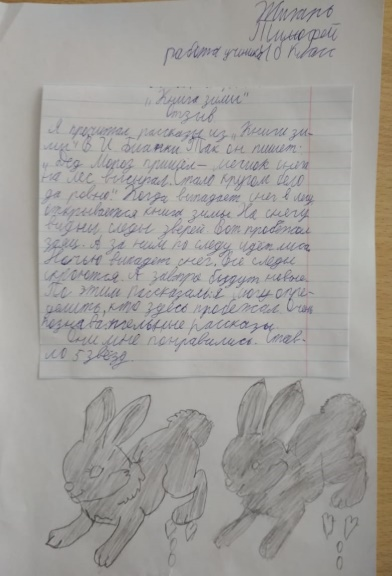 Жихарь
Тимофей
работа ученика 10 класс
„Книга зимы"
Отзыв
Я прочитал рассказы из „Книги зи-
мы" В. И. Бианки. Так он пишет:
„Дед Мороз пришёл – мешок снега
на лес высыпал. Стало кругом бело
да ровно." Когда выпадает снег в лесу
открывается книга зимы. На снегу
видны следы зверей. Вот пробежал
заяц. А за ним по следу идёт лиса.
Ночью выпадет снег. Все следы
скроются. А завтра будут новые.
По этим рассказам я могу опре-
делить, кто здесь пробежал. Очень
познавательные рассказы.
Они мне понравились. Став-
лю 5 звёзд.